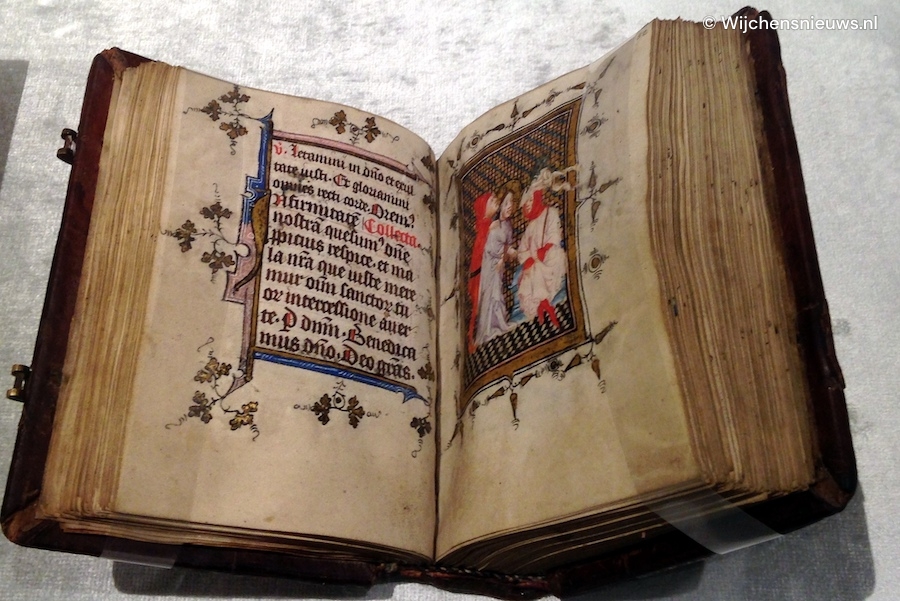 © Wijchensnieuws.nl
v. Letamini in dn̄o et exul
tate iusti. Et gloriamini
omnes recti corde. Oremꝰ
Nfirmitatē Collecta.
nostram quesumꝰ dn̄e
ppicius respice. et ma
la nr̄a que iuste mere
mur oīm sanctoꝝ tu
oꝝ intercessione auer
te. P dn̄m. Benedica
mus dn̄o. Deo gr̄as.